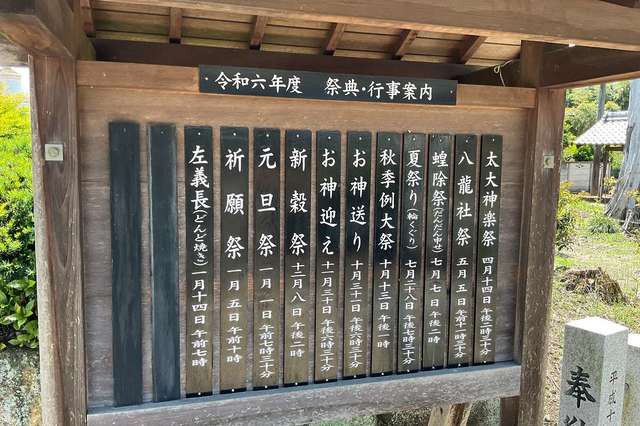 令和六年度　祭典・行事案内
太大神楽祭 四月十四日 午後二時三十分
八龍社祭 五月五日 午前十一時三十分
蝗除祭(だんだん申せ) 七月七日 午後一時
夏祭り(輪くぐり) 七月二十八日 午後七時三十分
秋季例大祭 十月十三日 午後一時
お神送り 十月三十一日 午後六時三十分
お神迎え 十一月三十日 午後六時三十分
新穀祭 十二月八日 午後一時
元旦祭 一月一日 午前七時三十分
祈願祭 一月五日 午前十時
左義長(どんど焼き) 一月十四日 午前七時
奉
平成十